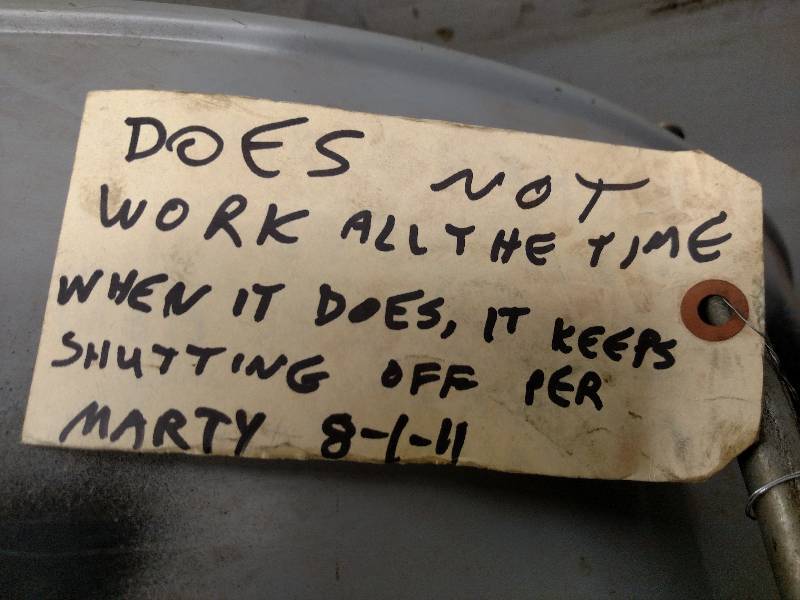 DOES NOT
WORK ALL THE TIME
WHEN IT DOES, IT KEEPS
SHUTTING OFF PER
MARTY 8-1-11